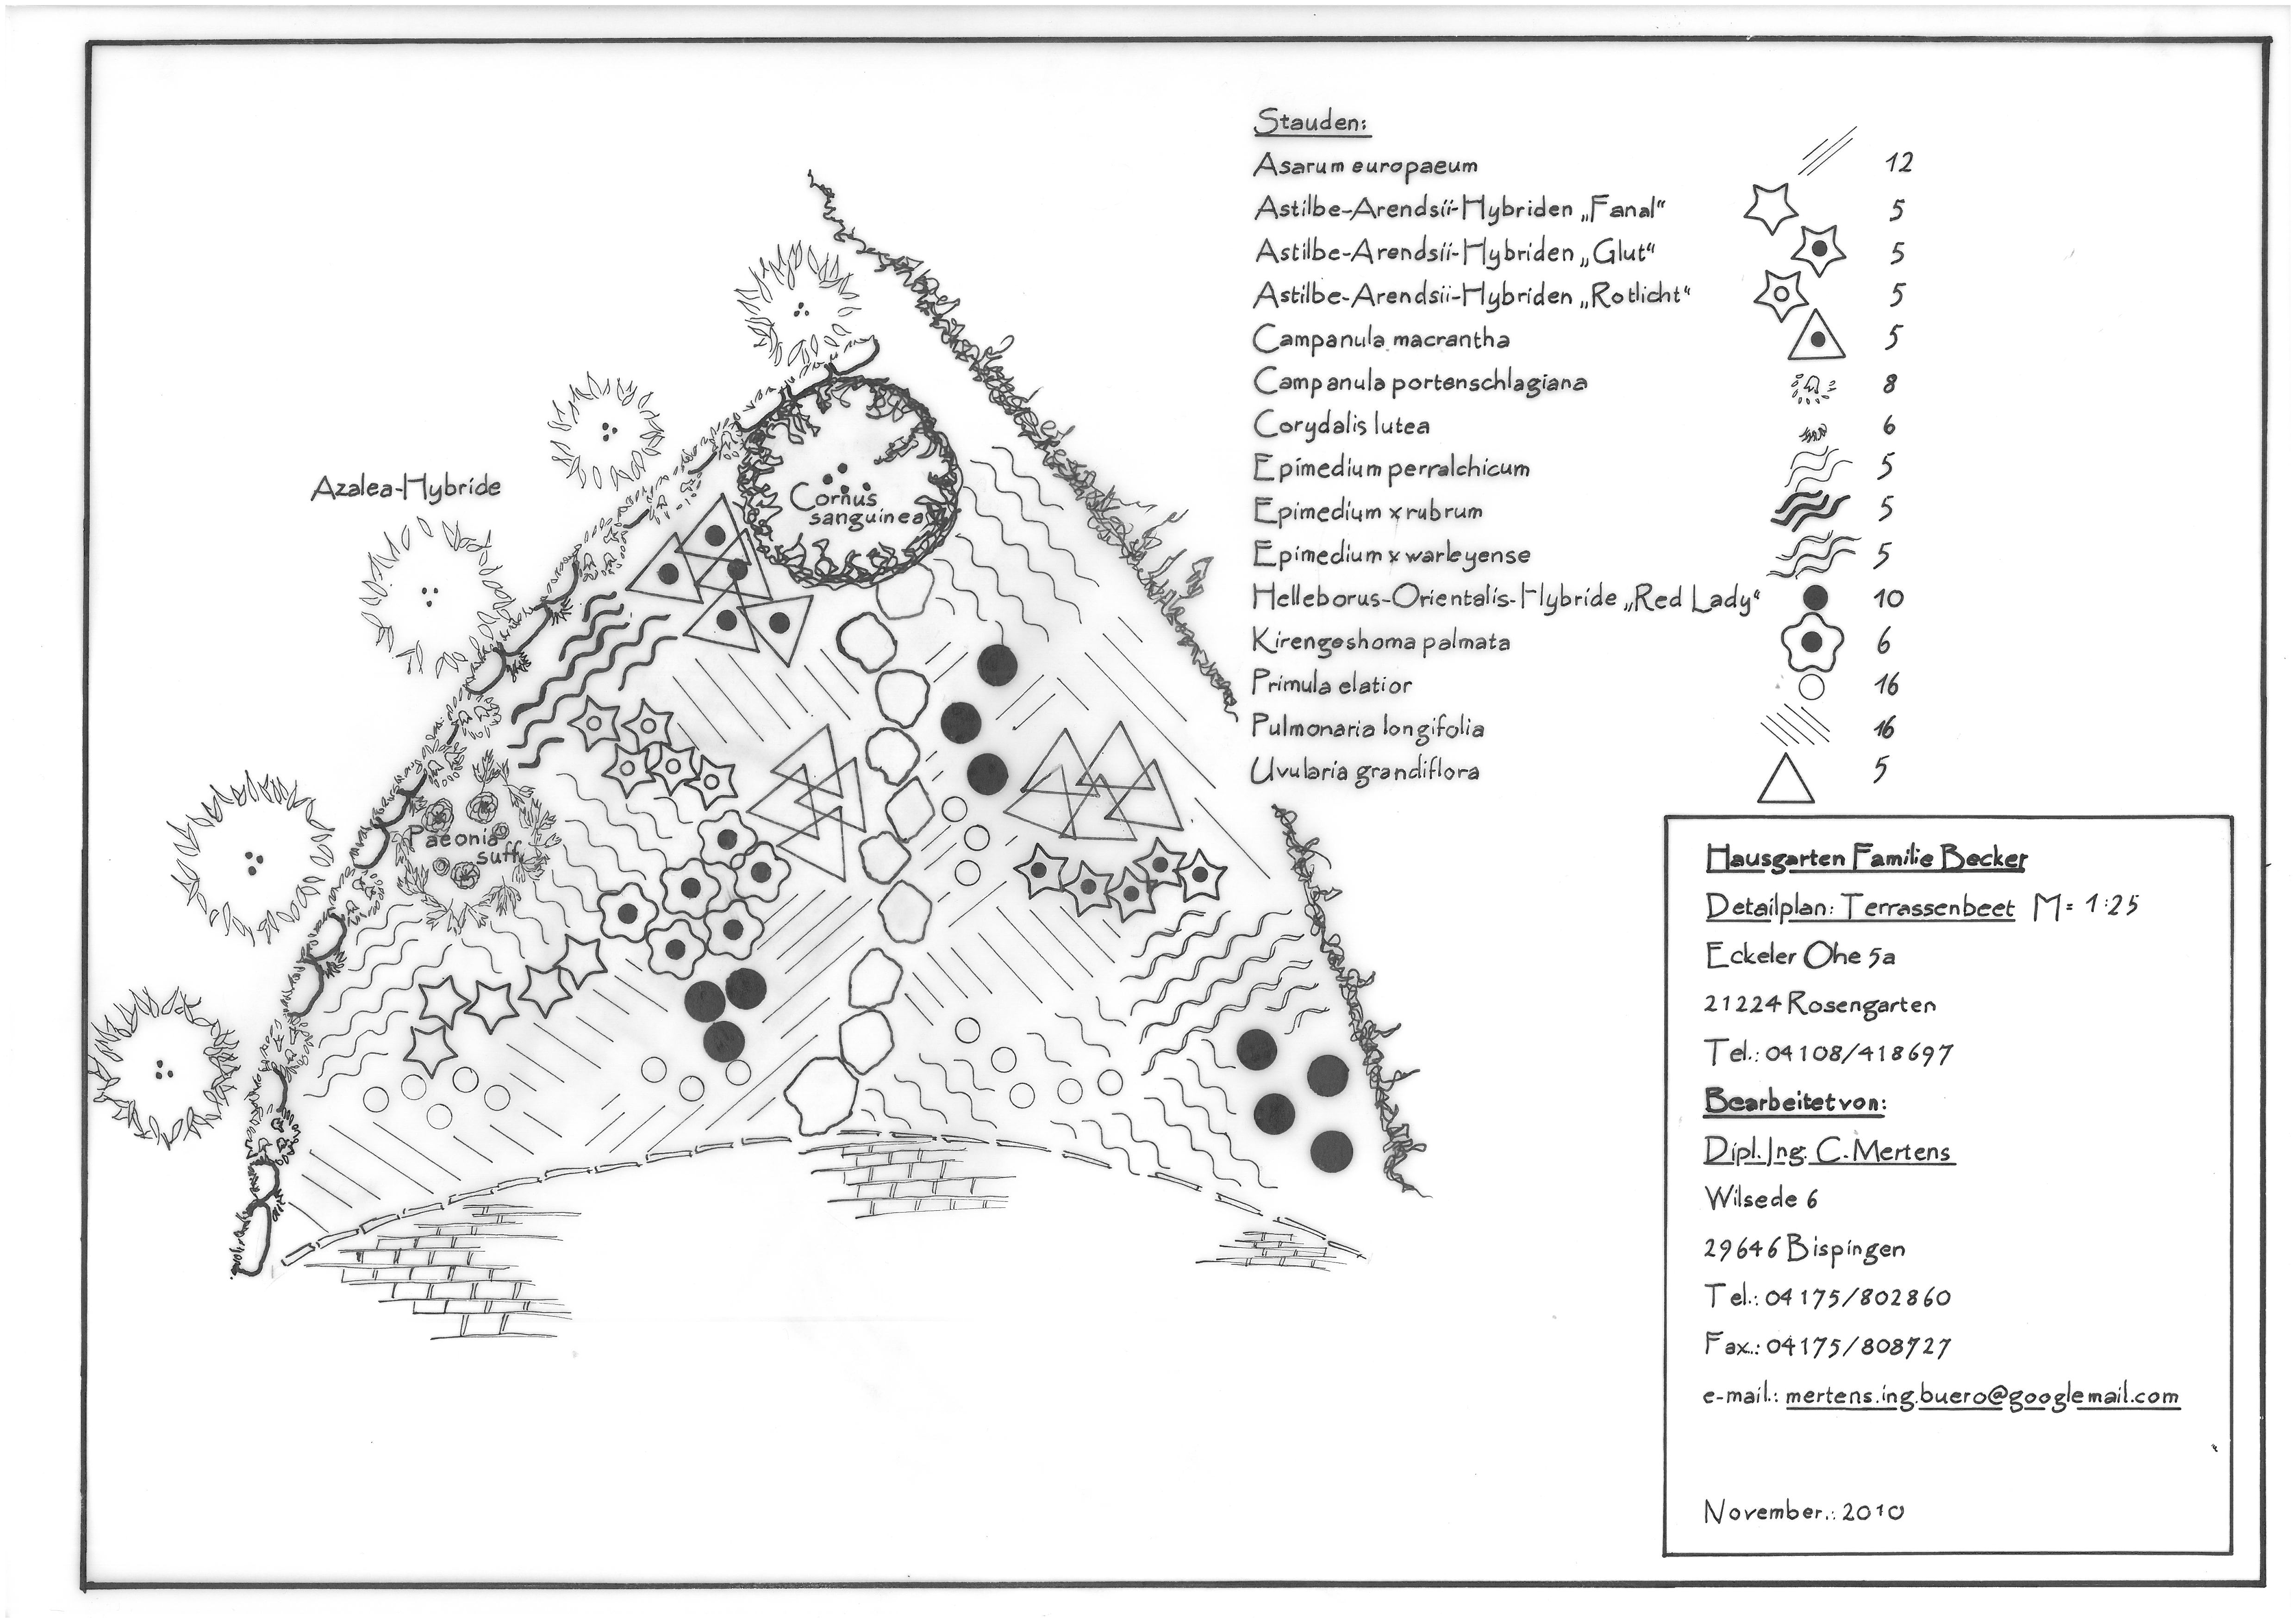 Stauden:
Asarum europaeum 12
Astilbe-Arendsii-Hybriden „Fanal“ 5
Astilbe-Arendsii-Hybriden „Glut“ 5
Astilbe-Arendsii-Hybriden „Rotlicht“ 5
Campanula macrantha 5
Campanula portenschlagiana 8
Corydalis lutea 6
Epimedium perralchicum 5
Epimedium x rubrum 5
Epimedium x warleyense 5
Helleborus-Orientalis-Hybride „Red Lady“ 10
Kirengoshoma palmata 6
Primula elatior 16
Pulmonaria longifolia 16
Uvularia grandiflora 5
Azalea-Hybride
Cornus
sanguinea
Paeonia
suff.
Hausgarten Familie Becker
Detailplan: Terrassenbeet M= 1:25
Eckeler Ohe 5a
21224 Rosengarten
Tel.: 04108/418697
Bearbeitet von:
Dipl. Ing. C. Mertens
Wilsede 6
29646 Bispingen
Tel.: 04175/802860
Fax.: 04175/808727
e-mail.: mertens.ing.buero@googlemail.com
November.: 2010